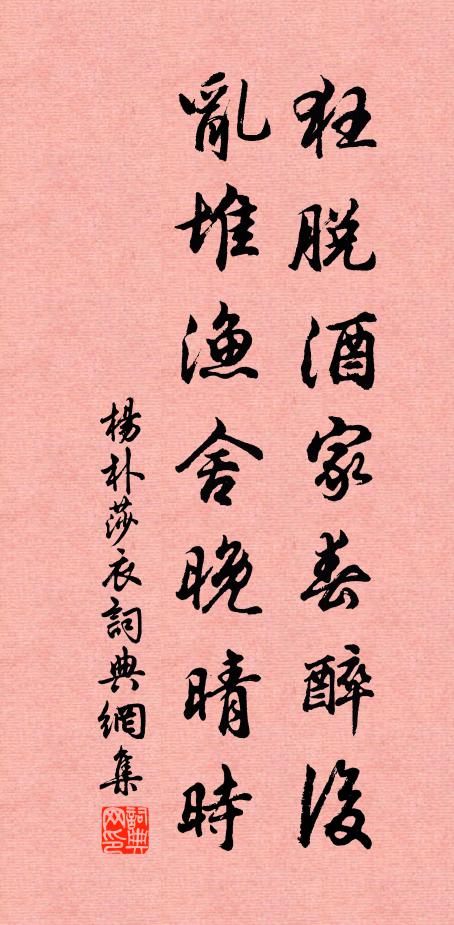 狂脫酒家春醉後
亂堆漁舍晚晴時
楊朴莎衣詞典網集
詞典网印